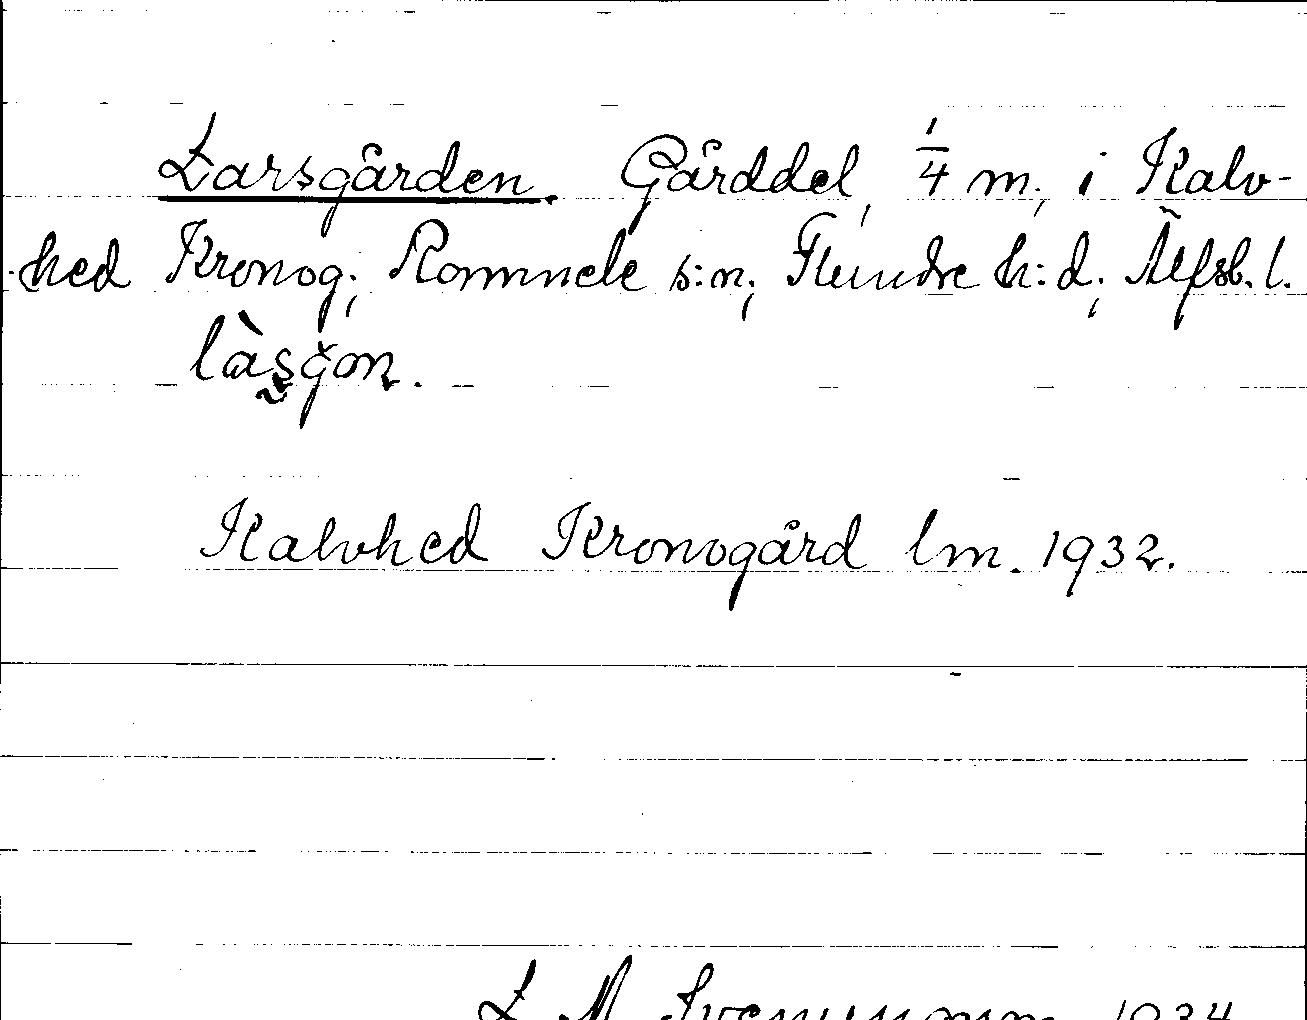 Larsgården. Gårddel, 1/4 m, i Kalv-
hed Kronog., Rommele s:n, Flundre h:d, Älfsb. l.
làsgon.
Kalvhed Kronogård lm. 1932.
L M Svenungsson 1934